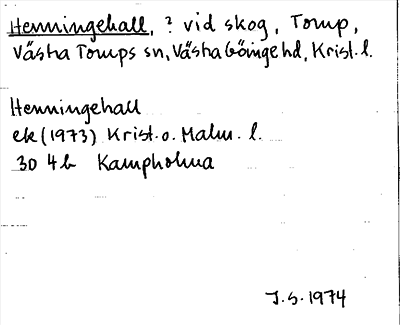 Henningehall, ? vid skog, Torup,
Västra Torups sn, Västra Göinge hd, Krist. l.
Henningehall
ek (1973) Krist. o. Malm. l.
3D 4b Kampholma
J.S. 1974